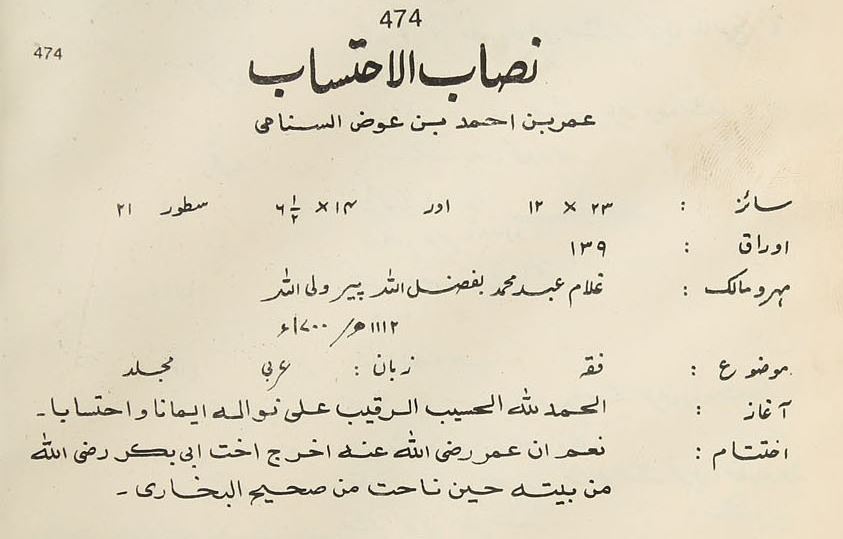 474
474
نصاب الاحتساب
عمر بن احمد بن عوض السنامی
سائز : ۲۳ × ۱۲ اور ۱۴ × ۶ ۱/۲ سطور ۲۱
اوراق : ۱۳۹
مہر و مالک : غلام عبد محمد بفضل اللہ پیر ولی اللہ
۱۱۱۲ھ/ ۱۷۰۰ء
موضوع : فقہ زبان : عربی مجلد
آغاز : الحمد للہ الحسیب الرقیب علی نوالہ ایمانا و احتسابا۔
اختتام : نعم ان عمر رضی اللہ عنہ اخرج اخت ابی بکر رضی اللہ
من بیتہ حین ناحت من صحیح البخاری۔